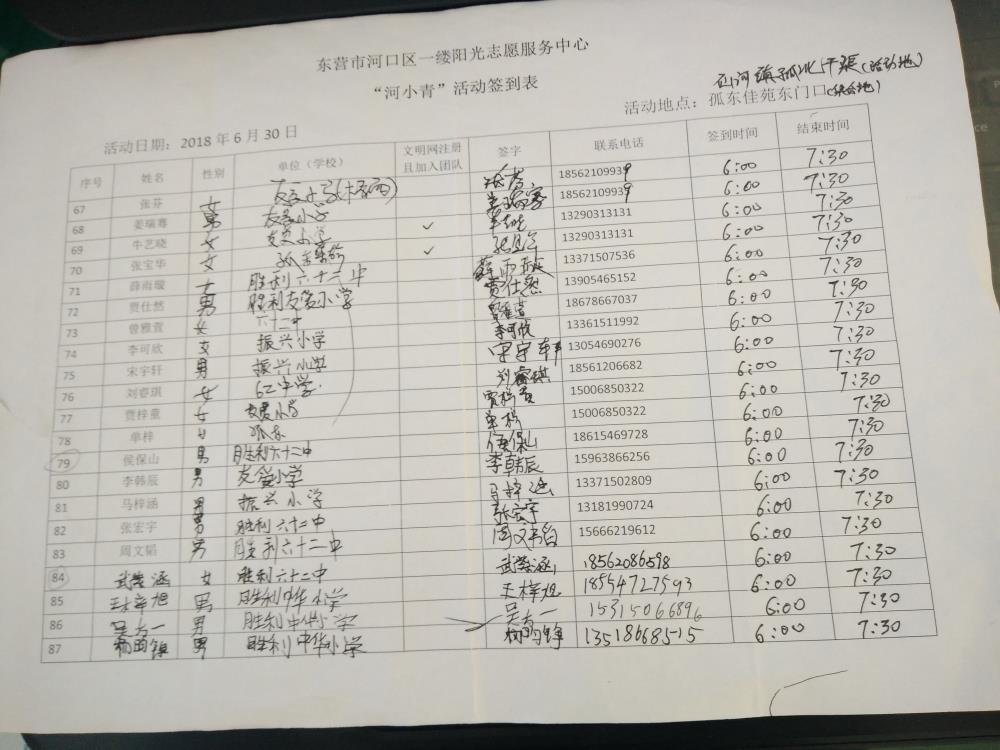 东营市河口区一缕阳光志愿服务中心
“河小青”活动签到表
活动日期：2018年6月30日 活动地点：孤东佳苑东门口(集合地)
(活动地)
序号 姓名 性别 单位（学校） 文明网注册且加入团队 签字 联系电话 签到时间 结束时间
67 张芬 女 18562109939 6:00 7:30
68 姜瑞骞 男 友爱小学 姜瑞骞 18562109939 6:00 7:30
69 牛艺晓 女 友爱小学 ✓ 13290313131 6:00 7:30
70 张宝华 女 ✓ 13290313131 6:00 7:30
71 薛雨璇 女 胜利六十二中 薛雨璇 13371507536 6:00 7:30
72 贾仕然 男 胜利友爱小学 贾仕然 13905465152 6:00 7:30
73 曾雅萱 女 六十二中 18678667037 6:00 7:30
74 李可欣 女 振兴小学 李可欣 13361511992 6:00 7:30
75 宋宇轩 男 振兴小学 宋宇轩 13054690276 6:00 7:30
76 刘睿琪 女 62中学 刘睿琪 18561206682 6:00 7:30
77 贾梓童 女 友爱小学 15006850322 6:00 7:30
78 单梓 女 孤东 单梓 15006850322 6:00 7:30
79 侯保山 男 胜利六十二中 侯保山 18615469728 6:00 7:30
80 李韩辰 男 友爱小学 李韩辰 15963866256 6:00 7:30
81 马梓涵 男 振兴小学 马梓涵 13371502809 6:00 7:30
82 张宏宇 男 胜利六十二中 张宏宇 13181990724 6:00 7:30
83 周文韬 男 胜利六十二中 周文韬 15666219612 6:00 7:30
84 武荣涵 女 胜利六十二中 武荣涵 18562086598 6:00 7:30
85 王梓旭 男 胜利中华小学 王梓旭 18554727593 6:00 7:30
86 吴方一 男 胜利中华小学 吴方一 15315066896 6:00 7:30
87 男 胜利中华小学 13518668515 6:00 7:30